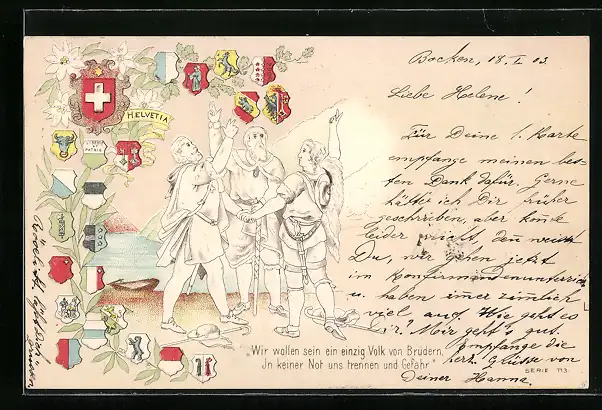 Bocken, 18. I. 03
Liebe Helene!
Für Deine l. Karte
empfange meinen bes-
ten Dank dafür. Gerne
hätte ich Dir früher
geschrieben, aber konnte
leider nicht, denn weisst
Du, wir gehen jetzt
im Konfirmandenunterricht
u. haben imer zimlich
viel auf. Wie geht es
Dir? Mir geht's gut.
Empfange die
herz. Grüsse von
Deiner Hanna.
HELVETIA
LIBERTÉ
PATRIE
Wir wollen sein ein einzig Volk von Brüdern,
In keiner Not uns trennen und Gefahr
SERIE 113.